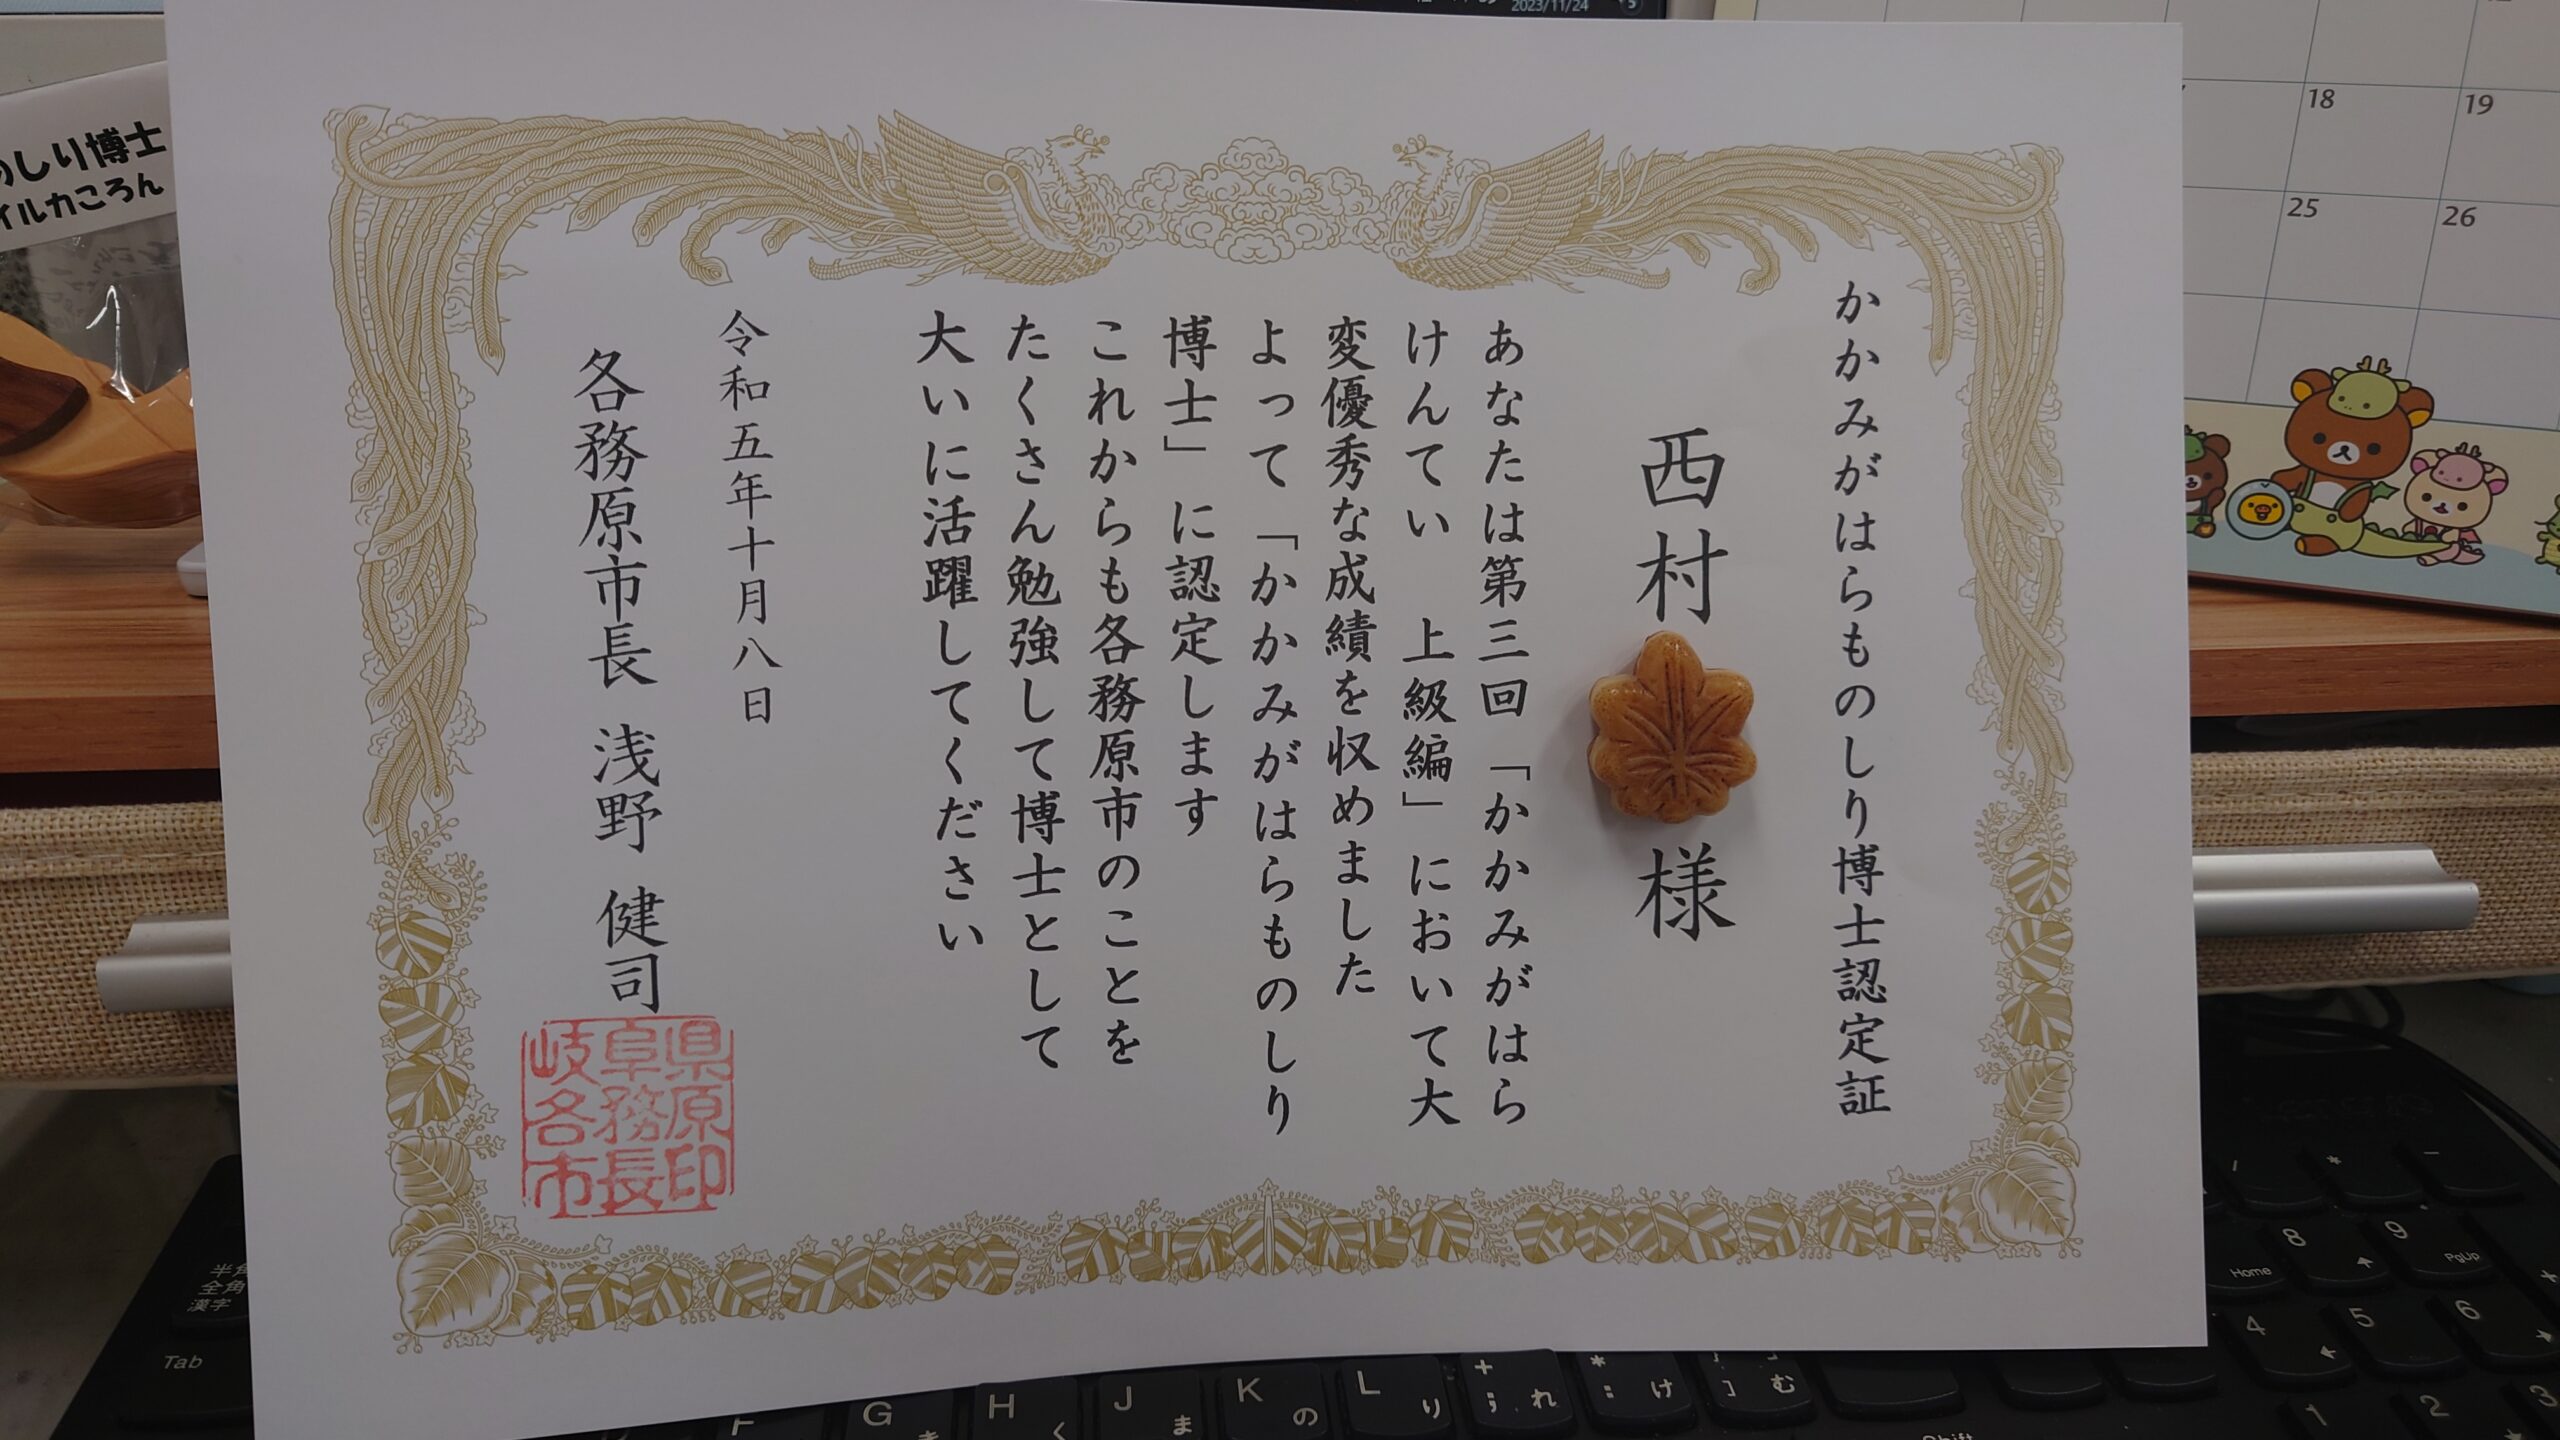 かかみがはらものしり博士認定証
西村
様
あなたは第三回「かかみがはら
けんてい 上級編」において大
変優秀な成績を収めました
よって「かかみがはらものしり
博士」に認定します
これからも各務原市のことを
たくさん勉強して博士として
大いに活躍してください
令和五年十月八日
各務原市長 浅野 健司
岐阜県
各務原
市長印
のしり博士
イルカころん
2023/11/24
18
19
25
26
半角
全角
漢字
Tab
F
G き
H く
J ま
K の
L り
+ ; れ
* : け
} ] む
Shift
/
*
-
8
9 PgUp
Home
+
4
5
6
1
2
3